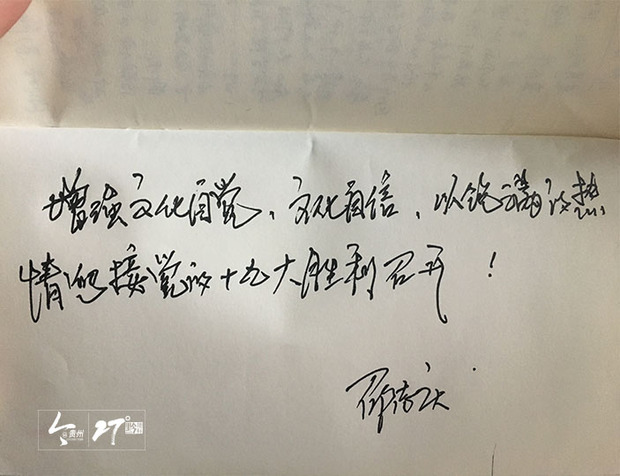 增强文化自觉、文化自信，以饱满的热
情迎接党的十九大胜利召开！
@贵州
27°